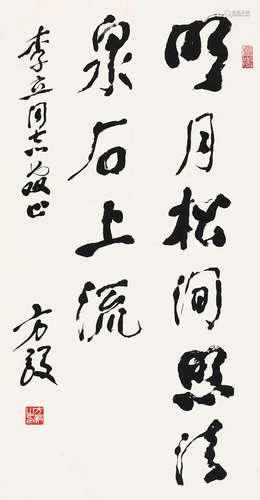 明月松间照清
泉石上流
李立同志嘱正
方毅